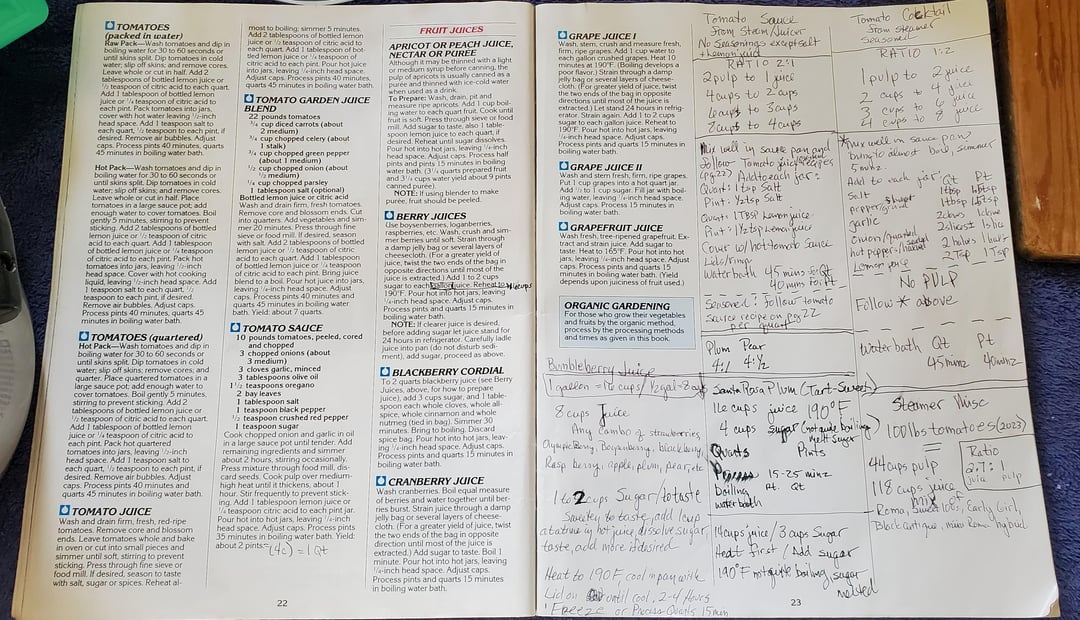 TOMATOES
(packed in water)
Raw Pack—Wash tomatoes and dip in
boiling water for 30 to 60 seconds or
until skins split. Dip tomatoes in cold
water; slip off skins; and remove cores.
Leave whole or cut in half. Add 2
tablespoons of bottled lemon juice or
1/2 teaspoon of citric acid to each
quart. Add 1 tablespoon of lemon juice
or 1/4 teaspoon of citric acid
to each pint. Pack tomatoes into jars,
cover with hot water leaving 1/2-inch
head space. Add 1 teaspoon salt to
each quart, 1/2 teaspoon to each pint, if
desired. Remove air bubbles. Adjust
caps. Process pints 40 minutes, quarts
45 minutes in boiling water bath.
Hot Pack—Wash tomatoes and dip in
boiling water for 30 to 60 seconds or
until skins split. Dip tomatoes in cold
water; slip off skins and remove cores.
Leave whole or cut in half. Place
tomatoes in a large sauce pot; add
enough water to cover tomatoes. Boil
gently 5 minutes, stirring to prevent
sticking. Add 2 tablespoons of bottled
lemon juice or 1/2 teaspoon of citric
acid to each quart. Add 1 tablespoon
of bottled lemon juice or 1/4 teaspoon
of citric acid to each pint. Pack hot
tomatoes into jars, leaving 1/2-inch
head space. Cover with hot cooking
liquid, leaving 1/2-inch head space.
Add 1 teaspoon salt to each quart, 1/2
teaspoon to each pint, if desired.
Remove air bubbles. Adjust caps.
Process pints 40 minutes, quarts 45
minutes in boiling water bath.
TOMATOES (quartered)
Hot Pack—Wash tomatoes and dip in
boiling water for 30 to 60 seconds or
until skins split. Dip tomatoes in cold
water; slip off skins; remove cores; and
quarter. Place quartered tomatoes in a
large sauce pot; add enough water to cover.
Boil gently 5 minutes, stirring to
prevent sticking. Add 2
tablespoons of bottled lemon juice or
1/2 teaspoon of citric acid to each
quart. Add 1 tablespoon of bottled
lemon juice or 1/4 teaspoon of citric
acid to each pint. Pack hot quartered
tomatoes into jars, leaving 1/2-inch
head space. Add 1 teaspoon salt to
each quart, 1/2 teaspoon to each pint, if
desired. Remove air bubbles. Adjust
caps. Process pints 40 minutes,
quarts 45 minutes in boiling water
bath.
TOMATO JUICE
Wash and drain firm, fresh, red-ripe
tomatoes. Remove core and blossom
ends. Leave tomatoes whole and bake
in oven or cut into small pieces and
simmer until soft, stirring to prevent
sticking. Press through fine sieve or
food mill. If desired, season to taste
with salt, sugar or spices. Reheat al-
most to boiling; simmer 5 minutes.
Add 2 tablespoons of bottled lemon
juice or 1/2 teaspoon of citric acid to
each quart. Add 1 tablespoon of bot-
tled lemon juice or 1/4 teaspoon of
citric acid to each pint. Pour hot juice
into jars, leaving 1/4-inch head space.
Adjust caps. Process pints 40 minutes,
quarts 45 minutes in boiling water bath.
TOMATO GARDEN JUICE
BLEND
22 pounds tomatoes
3/4 cup diced carrots (about
2 medium)
3/4 cup chopped celery (about
1 stalk)
3/4 cup chopped green pepper
(about 1 medium)
1/2 cup chopped onion (about
1/2 medium)
1/4 cup chopped parsley
1 tablespoon salt (optional)
Bottled lemon juice or citric acid
Wash and drain firm, fresh tomatoes.
Remove core and blossom ends. Cut
into quarters. Add vegetables and sim-
mer 20 minutes. Press through fine
sieve or food mill. If desired, season
with salt. Add 2 tablespoons of bottled
lemon juice or 1/2 teaspoon of citric
acid to each quart. Add 1 tablespoon
of bottled lemon juice or 1/4 teaspoon
of citric acid to each pint. Bring juice
blend to a boil. Pour hot into hot jars,
leaving 1/4-inch head space. Adjust
caps. Process pints 40 minutes and
quarts 45 minutes in boiling water
bath. Yield: about 7 quarts.
TOMATO SAUCE
10 pounds tomatoes, peeled, cored
and chopped
3 chopped onions (about
3 medium)
3 cloves garlic, minced
3 tablespoons olive oil
1 1/2 teaspoons oregano
2 bay leaves
1 tablespoon salt
1 teaspoon black pepper
1/2 teaspoon crushed red pepper
1 teaspoon sugar
Cook chopped onion and garlic in oil
in a large sauce pot until tender. Add
remaining ingredients and simmer
about 2 hours, stirring occasionally.
Press mixture through food mill, dis-
card seeds. Cook pulp over medium-
high heat until it thickens, about 1
hour. Stir frequently to prevent stick-
ing. Add 1 tablespoon lemon juice or
1/4 teaspoon citric acid to each pint jar.
Pour hot into hot jars, leaving 1/4-inch
head space. Adjust caps. Process pints
35 minutes in boiling water bath. Yield:
about 2 pints. (4c) = 1 Qt
22
FRUIT JUICES
APRICOT OR PEACH JUICE,
NECTAR OR PUREE
Although it may be thinned with a light
or medium syrup before canning, the
pulp of apricots is usually canned as a
purée and thinned with ice-cold water
when used as a drink.
To Prepare: Wash, drain, pit and
measure ripe apricots. Add 1 cup boil-
ing water to each quart fruit. Cook until
fruit is soft. Press through sieve or food
mill. Add sugar to taste, also 1 table-
spoon lemon juice to each quart, if
desired. Reheat until sugar dissolves.
Pour hot into hot jars, leaving 1/4-inch
head space. Adjust caps. Process half
pints and pints 15 minutes in boiling
water bath. (3 1/4 quarts prepared fruit
and 3 1/4 cups water yield about 9 pints
canned puree).
NOTE: If using blender to make
purée, fruit should be peeled.
BERRY JUICES
Use boysenberries, loganberries,
raspberries, etc. Wash, crush and sim-
mer berries until soft. Strain through
a damp jelly bag or several layers of
cheesecloth. (For a greater yield of
juice, twist the two ends of the bag in
opposite directions until most of the
juice is extracted.) Add 1 to 2 cups
sugar to each gallon juice. Reheat to 16cups
190°F. Pour hot into hot jars, leaving
1/4-inch head space. Adjust caps.
Process pints and quarts 15 minutes
in boiling water bath.
NOTE: If clearer juice is desired,
before adding sugar let juice stand for
24 hours in refrigerator. Carefully ladle
juice into pan (do not disturb sedi-
ment), add sugar, proceed as above.
BLACKBERRY CORDIAL
To 2 quarts blackberry juice (see Berry
Juices, above, for how to prepare
juice), add 3 cups sugar, and 1 table-
spoon each whole cloves, whole all-
spice, whole cinnamon and whole
nutmeg (tied in bag). Simmer 30
minutes. Bring to boiling. Discard
spice bag. Pour hot into hot jars, leav-
ing 1/4-inch head space. Adjust caps.
Process pints and quarts 15 minutes
in boiling water bath.
CRANBERRY JUICE
Wash cranberries. Boil equal measure
of berries and water together until ber-
ries burst. Strain juice through a damp
jelly bag or several layers of cheese-
cloth. (For a greater yield of juice, twist
the two ends of the bag in opposite
directions until most of the juice is
extracted.) Add sugar to taste. Boil 1
minute. Pour hot into hot jars, leaving
1/4-inch head space. Adjust caps.
Process pints and quarts 15 minutes
in boiling water bath.
GRAPE JUICE I
Wash, stem, crush and measure fresh,
firm, ripe grapes. Add 1 cup water to
each gallon crushed grapes. Heat 10
minutes at 190°F. (Boiling develops a
poor flavor.) Strain through a damp
jelly bag or several layers of cheese-
cloth. (For greater yield of juice, twist
the two ends of the bag in opposite
directions until most of the juice is
extracted.) Let stand 24 hours in refrig-
erator. Strain again. Add 1 to 2 cups
sugar to each gallon juice. Reheat to
190°F. Pour hot into hot jars, leaving
1/4-inch head space. Adjust caps.
Process pints and quarts 15 minutes
in boiling water bath.
GRAPE JUICE II
Wash and stem fresh, firm, ripe grapes.
Put 1 cup grapes into a hot quart jar.
Add 1/2 to 1 cup sugar. Fill jar with boil-
ing water, leaving 1/4-inch head space.
Adjust caps. Process 15 minutes in
boiling water bath.
GRAPEFRUIT JUICE
Wash fresh, tree-ripened grapefruit. Ex-
tract and strain juice. Add sugar to
taste. Heat to 165°F. Pour hot into hot
jars, leaving 1/4-inch head space. Adjust
caps. Process pints and quarts 15
minutes in boiling water bath. (Yield
depends upon juiciness of fruit used.)
ORGANIC GARDENING
For those who grow their vegetables
and fruits by the organic method,
process by the processing methods
and times as given in this book.
Bumbleberry Juice
1 gallon = 16 cups/ 1/2 gal = 8 cups
8 cups Juice
Any combo of strawberries,
Olympic Berry, Boysenberry, blackberry,
Raspberry, apple, plum, pear, etc
1 to 2 cups Sugar/to taste
Sweeten to taste, add 1 cup
at a time in hot juice dissolve sugar,
taste, add more if desired
Heat to 190F, cool in pan with
Lid on until cool, 2-4 Hours
Freeze or Process Quarts 15 min
Tomato Sauce
from Steam/Juicer
No Seasonings except salt
+ Lemon juice
RATIO 2:1
2 pulp to 1 juice
4 cups to 2 cups
6 cups to 3 cups
8 cups to 4 cups
Mix well in sauce pan and
follow Tomato juice recipes
(pg 22) Add to each jar:
Quart: 1 tsp Salt
Pint: 1/2 tsp Salt
Quart: 1 TBSP Lemon juice
Pint: 1 1/2 tsp Lemon juice
Cover w/hot tomato Sauce
Lids/rings
Water bath 45 mins for Qt
40 mins for Pt
Seasoned: follow tomato
Sauce recipe on pg 22
per quart
Plum Pear
4:1 4:1/2
Santa Rosa Plum (Tart-Sweet)
16 cups juice 190°F
4 cups sugar (not quite boiling
melt sugar
Quarts Pints
15-25 minz
boiling Pt. Qt
water bath
14 cups juice / 3 cups Sugar
Heat first / Add sugar
190°F not quite boiling, sugar
melted
23
Tomato Cocktail
from Steamer
Seasoned
RATIO 1:2
1 pulp to 2 juice
2 cups to 4 juice
3 cups to 6 juice
4 cups to 8 juice
*Mix well in sauce pan
bring to almost boil, simmer
5 minz.
Add to each jar: Qt Pt
Salt
pepper/ground
garlic
Onion/quartered
hot pepper/
Lemon juice 2 Tsp 1 Tsp
No PULP
Follow * above
Water bath Qt Pt
45 minz 40 minz
Steamer Misc
100 lbs tomatoes (2023)
44 cups pulp
118 cups juice
Ratio
2.7:1
juice pulp
mix of
Roma, Sweet 100s, Early Girl,
Black antique, mini Roma hybrid